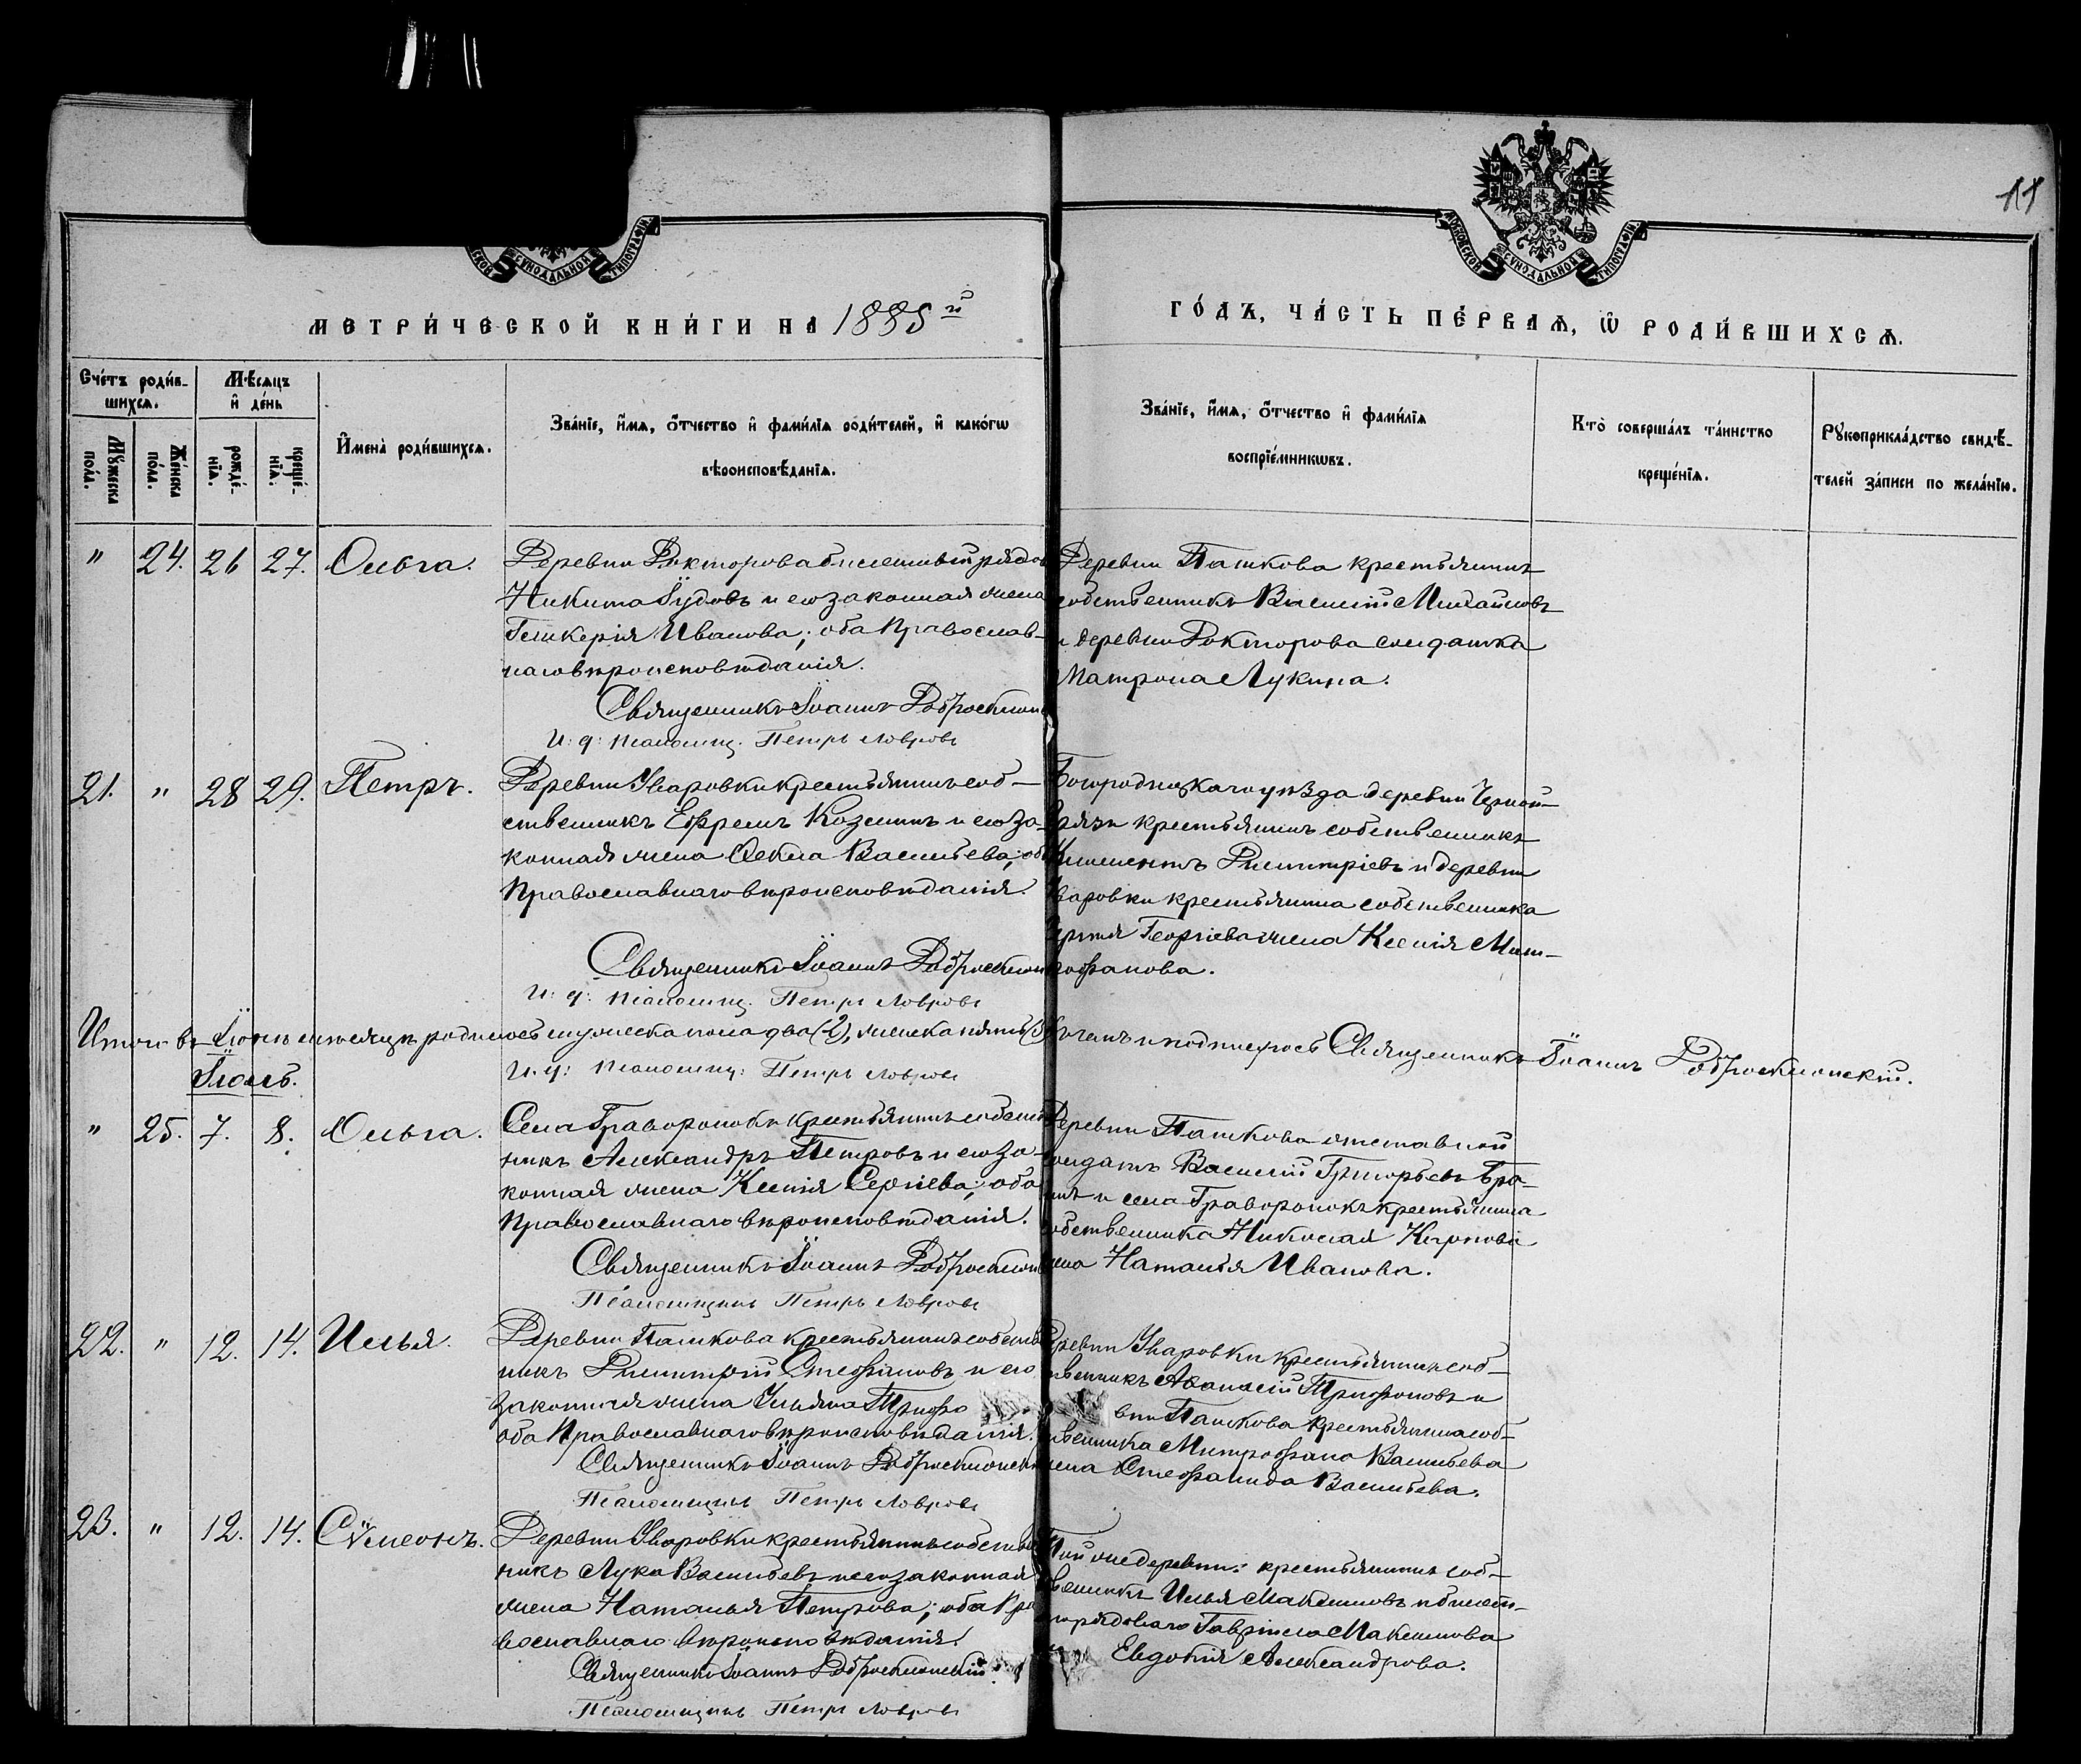 11
МЕТРИ́ЧЕСКОЙ КНИ́ГИ НА 1885 й
ГО́ДЪ, ЧА́СТЬ ПЕ́РВАѦ, Ѡ҆ РОДИ́ВШИХСѦ.
Сче́тъ роди́в-
шихсѧ.
Мѣ́сѧцъ
и҆ де́нь
Мꙋ́жеска
по́ла.
Же́нска
по́ла.
рожде́-
нїѧ.
креще́-
нїѧ.
И҆мена̀ роди́вшихсѧ.
Зва́нїе, и҆́мѧ, ѻ҆́тчество и҆ фами́лїѧ роди́телей, и҆ како́гѡ
вѣроисповѣ́данїѧ.
Зва́нїе, и҆́мѧ, ѻ҆́тчество и҆ фами́лїѧ
воспрїе́мникѡвъ.
Кто̀ соверша́лъ та́инство
креще́нїѧ.
Рꙋкоприкла́дство свидѣ́-
телей за́писи по жела́нїю.
" 24. 26 27. Ольга.
Деревни Докторова билетный рядов
Никита Гудовъ и его законная жена
Гликерія Иванова; оба Православ-
наго вѣроисповѣданія.
Священникъ Іоаннъ Доброклон
И: д: псаломщ. Петръ Лавровъ
Деревни Пашкова крестьянинъ
собственникъ Василій Михайловъ
и деревни Докторова солдатка
Матрона Лукина.
21. " 28 29. Петръ.
Деревни Уваровки крестьянинъ соб-
ственникъ Ефремъ Козминъ и его за-
конная жена Ѳекла Васильева; оба
Православнаго вѣроисповѣданія.
Священникъ Іоаннъ Доброклон
И: д: псаломщ. Петръ Лавровъ
Богородицкаго уѣзда деревни Черной
Грязи крестьянинъ собственникъ
Климентъ Димитріевъ и деревни
Уваровки крестьянина собственника
Георгіева жена Ксенія Мит-
рофанова.
Итого въ Іюнѣ мѣсяцѣ родилось мужеска пола два (2), женска пять (5) въ чемъ и подписуюсь Священникъ Іоаннъ Доброклонскій.
И. д: псаломщ: Петръ Лавровъ
Іюль.
" 25. 7. 8. Ольга.
Села Граворонокъ крестьянинъ собствен
никъ Александръ Петровъ и его за-
конная жена Ксенія Сергіева; оба
Православнаго вѣроисповѣданія.
Священникъ Іоаннъ Доброклон
Псаломщикъ Петръ Лавровъ
Деревни Пашкова отставной
солдатъ Василій Григорьевъ
и села Граворонокъ крестьянина
собственника Николая Карпова
жена Наталья Иванова.
22. " 12. 14. Илья.
Деревни Пашкова крестьянинъ собств
никъ Димитрій Стефановъ и его
законная жена Ульяна Трифо
оба Православнаго вѣроисповѣданія.
Священникъ Іоаннъ Доброклонск
Псаломщикъ Петръ Лавровъ
Деревни Уваровки крестьянинъ соб-
ственникъ Аѳанасій Трифоновъ и
вни Пашкова крестьянина соб-
ственника Митрофана Васильева
жена Стефанида Васильева.
23. " 12. 14. Сѵмеонъ.
Деревни Уваровки крестьянинъ собствен
никъ Лука Васильевъ и его законная
жена Наталья Петрова; оба Пра
вославнаго вѣроисповѣданія.
Священникъ Іоаннъ Доброклонскій.
Псаломщикъ Петръ Лавровъ
Той же деревни: крестьянинъ соб-
ственникъ Илья Максимовъ и билет-
рядоваго Гавріила Максимова
Евдокія Александрова.